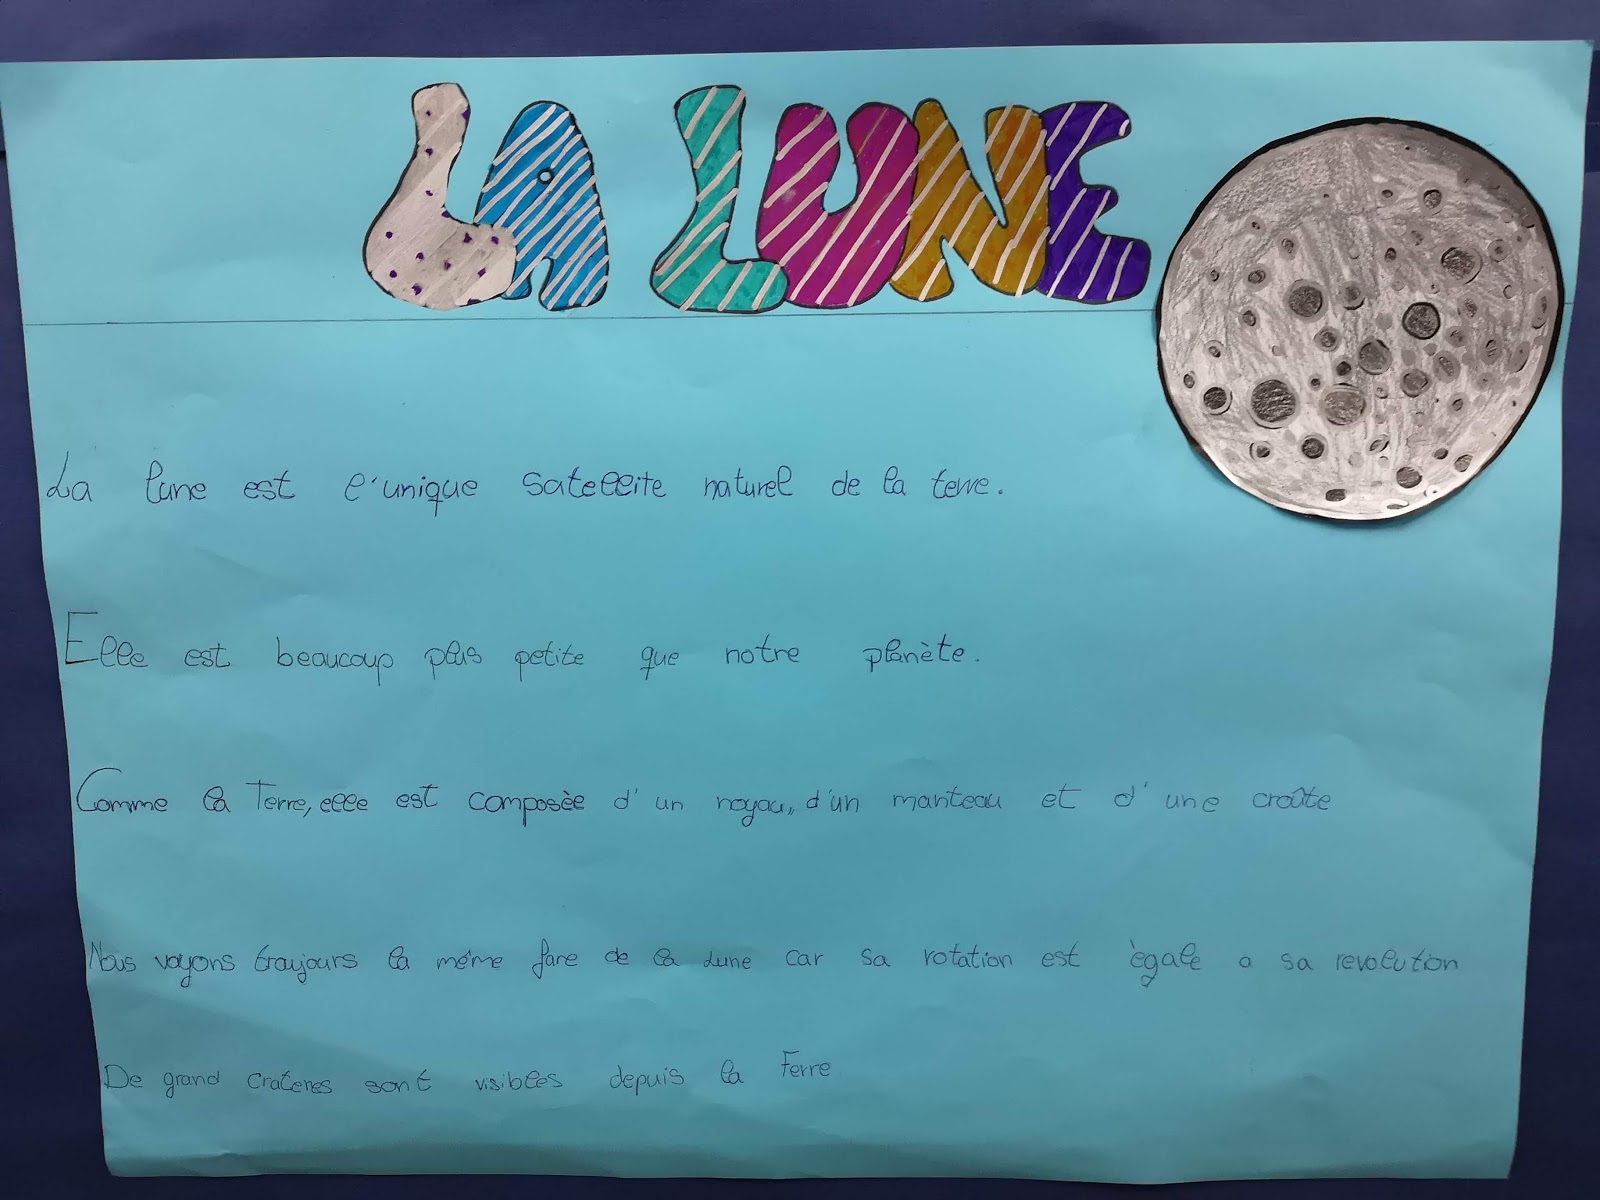 LA LUNE
La lune est l'unique satellite naturel de la terre.
Elle est beaucoup plus petite que notre planète.
Comme la Terre, elle est composèe d'un noyau, d'un manteau et d'une croûte
Nous voyons toujours la même face de la Lune car sa rotation est ègale a sa revolution
De grand crateres sont visibles depuis la Terre